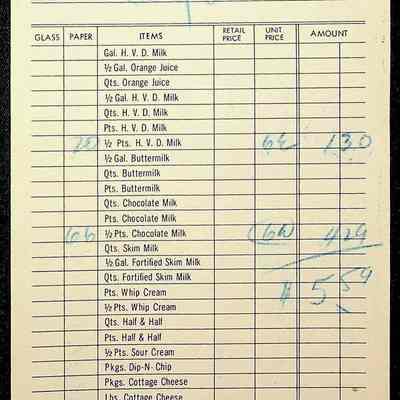 GLASS PAPER ITEMS RETAIL PRICE UNIT PRICE AMOUNT
Gal. H. V. D. Milk
½ Gal. Orange Juice
Qts. Orange Juice
½ Gal. H. V. D. Milk
Qts. H. V. D. Milk
Pts. H. V. D. Milk
20 ½ Pts. H. V. D. Milk 6½ 1 30
½ Gal. Buttermilk
Qts. Buttermilk
Pts. Buttermilk
Qts. Chocolate Milk
Pts. Chocolate Milk
66 ½ Pts. Chocolate Milk 6½ 4 29
Qts. Skim Milk
½ Gal. Fortified Skim Milk
Qts. Fortified Skim Milk $ 5 59
Pts. Whip Cream
½ Pts. Whip Cream
Qts. Half & Half
Pts. Half & Half
½ Pts. Sour Cream
Pkgs. Dip-N-Chip
Pkgs. Cottage Cheese
Lbs. Cottage Cheese